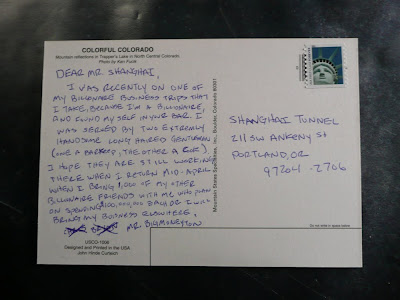 COLORFUL COLORADO
Mountain reflections in Trapper's Lake in North Central Colorado.
Photo by Ken Furta
DEAR MR. SHANGHAI,
I WAS RECENTLY ON ONE OF
MY BILLIONARE BUSINESS TRIPS THAT
I TAKE, BECAUSE I'M A BILLIONAIRE,
AND FOUND MYSELF IN YOUR BAR. I
WAS SERVED BY TWO EXTREMLY
HANDSOME LONG HAIRED GENTLEMAN
(ONE A BARKEEP, THE OTHER A COOK).
I HOPE THEY ARE STILL WORKING
THERE WHEN I RETURN MID-APRIL
WHEN I BRING 1,000 OF MY OTHER
BILLIONAIRE FRIENDS WITH ME WHO PLAN
ON SPENDING $100,000,000 EACH OR I WILL
BRING MY BUSINESS ELSEWHERE.
MR. BILLMONEYTON
USCO-1099
Designed and Printed in the USA
John Hinde Curteich
Mountain States Specialties, Inc., Boulder, Colorado 80301
SHANGHAI TUNNEL
211 SW ANKENY St
PORTLAND, OR
97204-2706
Do not write in space below.